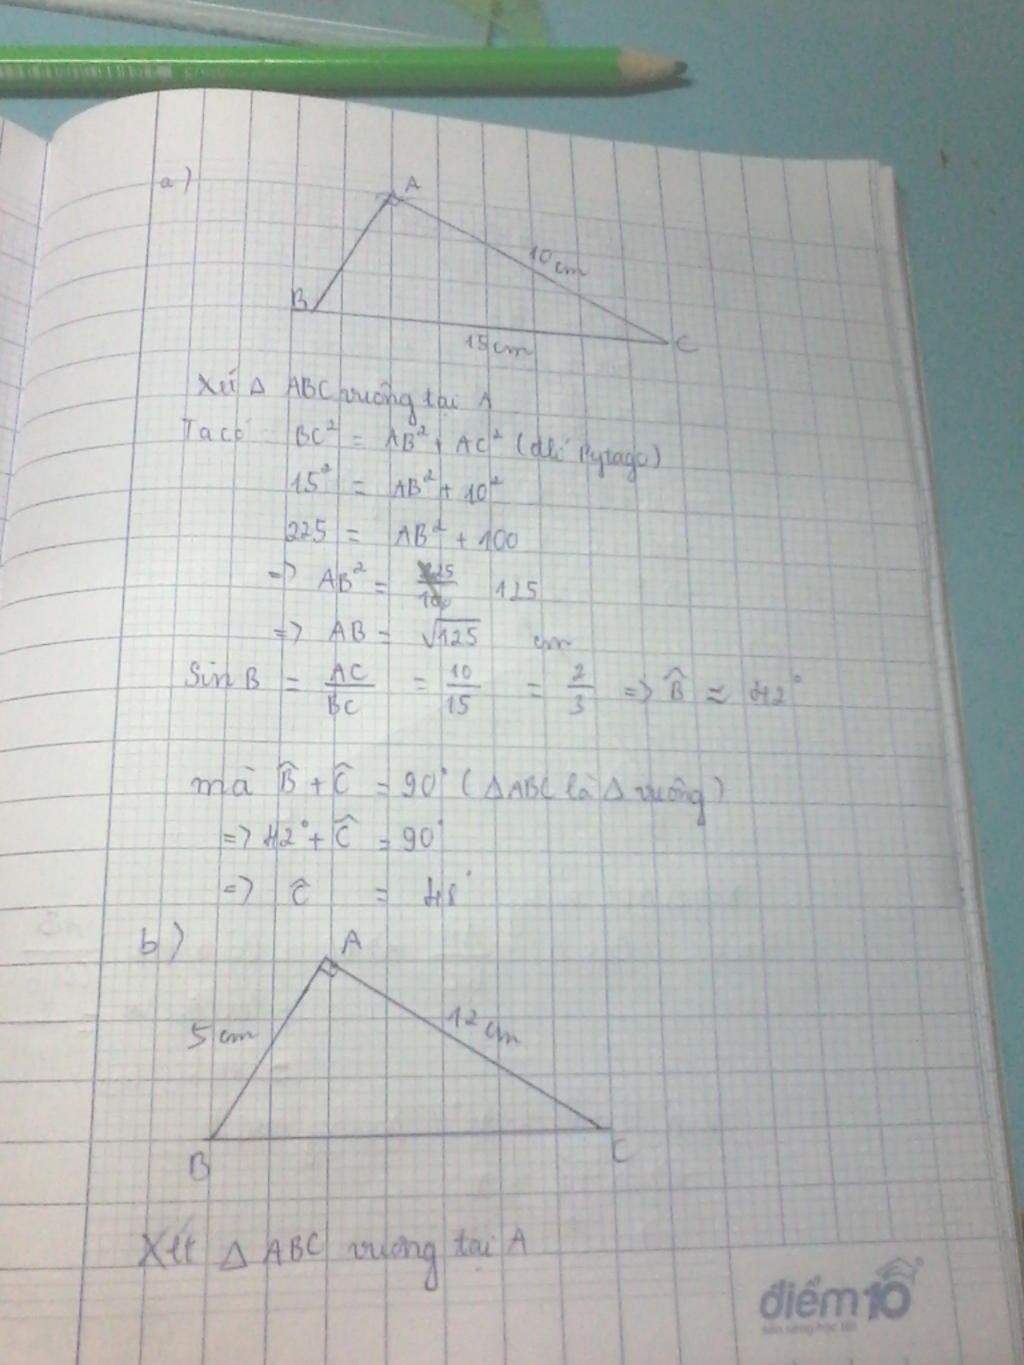 a)
A
10 cm
B
15 cm
C
Xét Δ ABC vuông tại A
Ta có BC² = AB² + AC² (đlí Pytago)
15² = AB² + 10²
225 = AB² + 100
=> AB² = 125
=> AB = √125 cm
Sin B = AC/BC = 10/15 = 2/3 => B̂ ≈ 42°
mà B̂ + Ĉ = 90° (ΔABC là Δ vuông)
=> 42° + Ĉ = 90°
=> Ĉ = 48°
b)
A
5 cm
12 cm
B
C
Xét Δ ABC vuông tại A
điểm 10